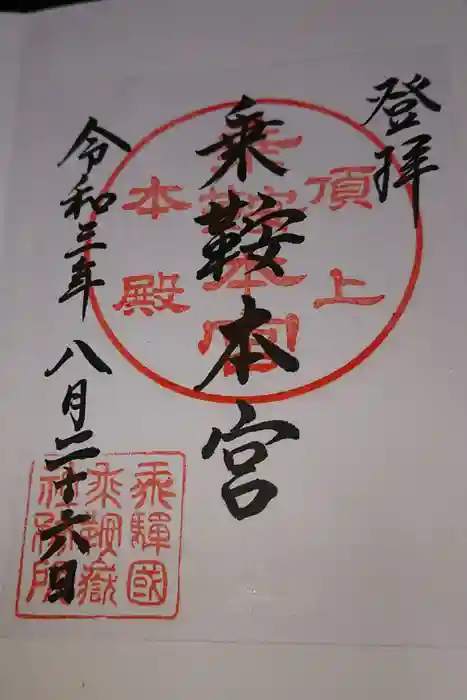 登拝
頂上
乗鞍本宮
乗鞍本宮
本殿
令和三年八月二十六日